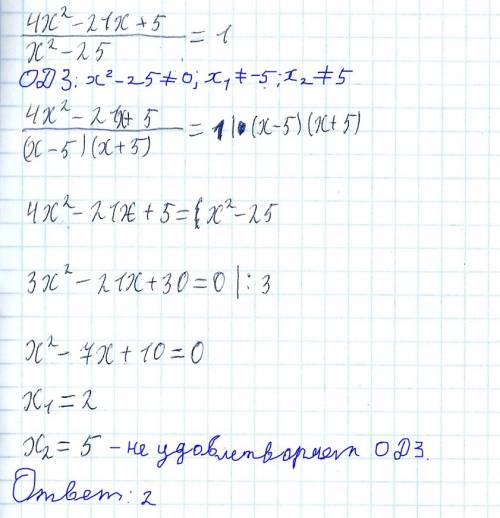 4x² - 21x + 5
x² - 25
= 1
ОДЗ: x² - 25 ≠ 0; x₁ ≠ -5; x₂ ≠ 5
4x² - 21x + 5
(x - 5)(x + 5)
= 1 | · (x - 5)(x + 5)
4x² - 21x + 5 = { x² - 25
3x² - 21x + 30 = 0 | : 3
x² - 7x + 10 = 0
x₁ = 2
x₂ = 5 - не удовлетворяет ОДЗ.
Ответ: 2